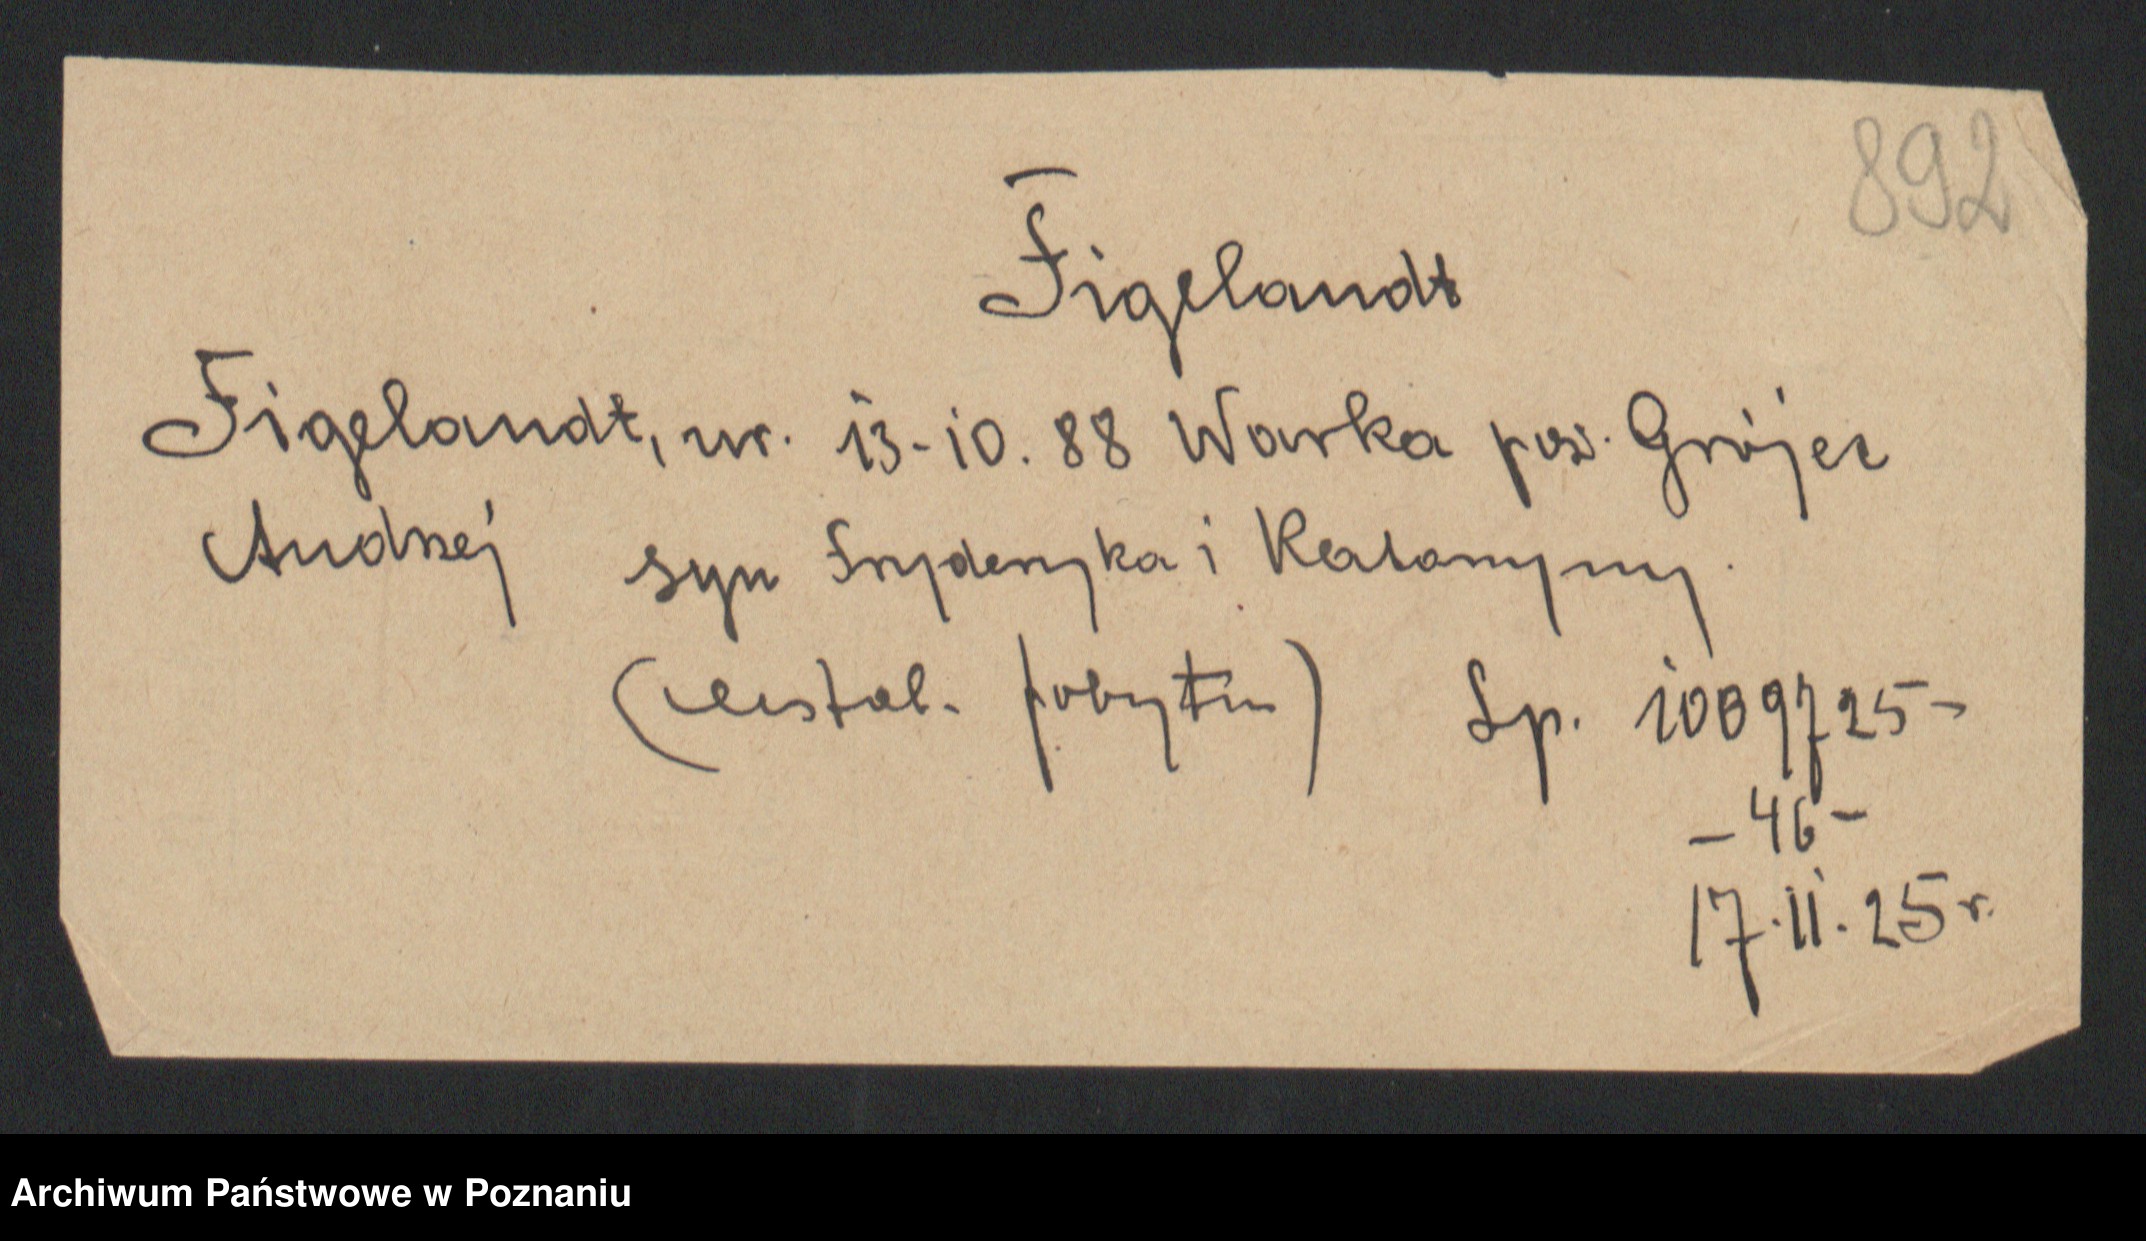 892
Figelandt
Figelandt, ur. 13-10.88 Warka pow. Grójec
Andrzej syn Fryderyka i Katarzyny.
(ustal. pobytu) Lp. 1009725-
-46-
17.II.25 r.
Archiwum Państwowe w Poznaniu